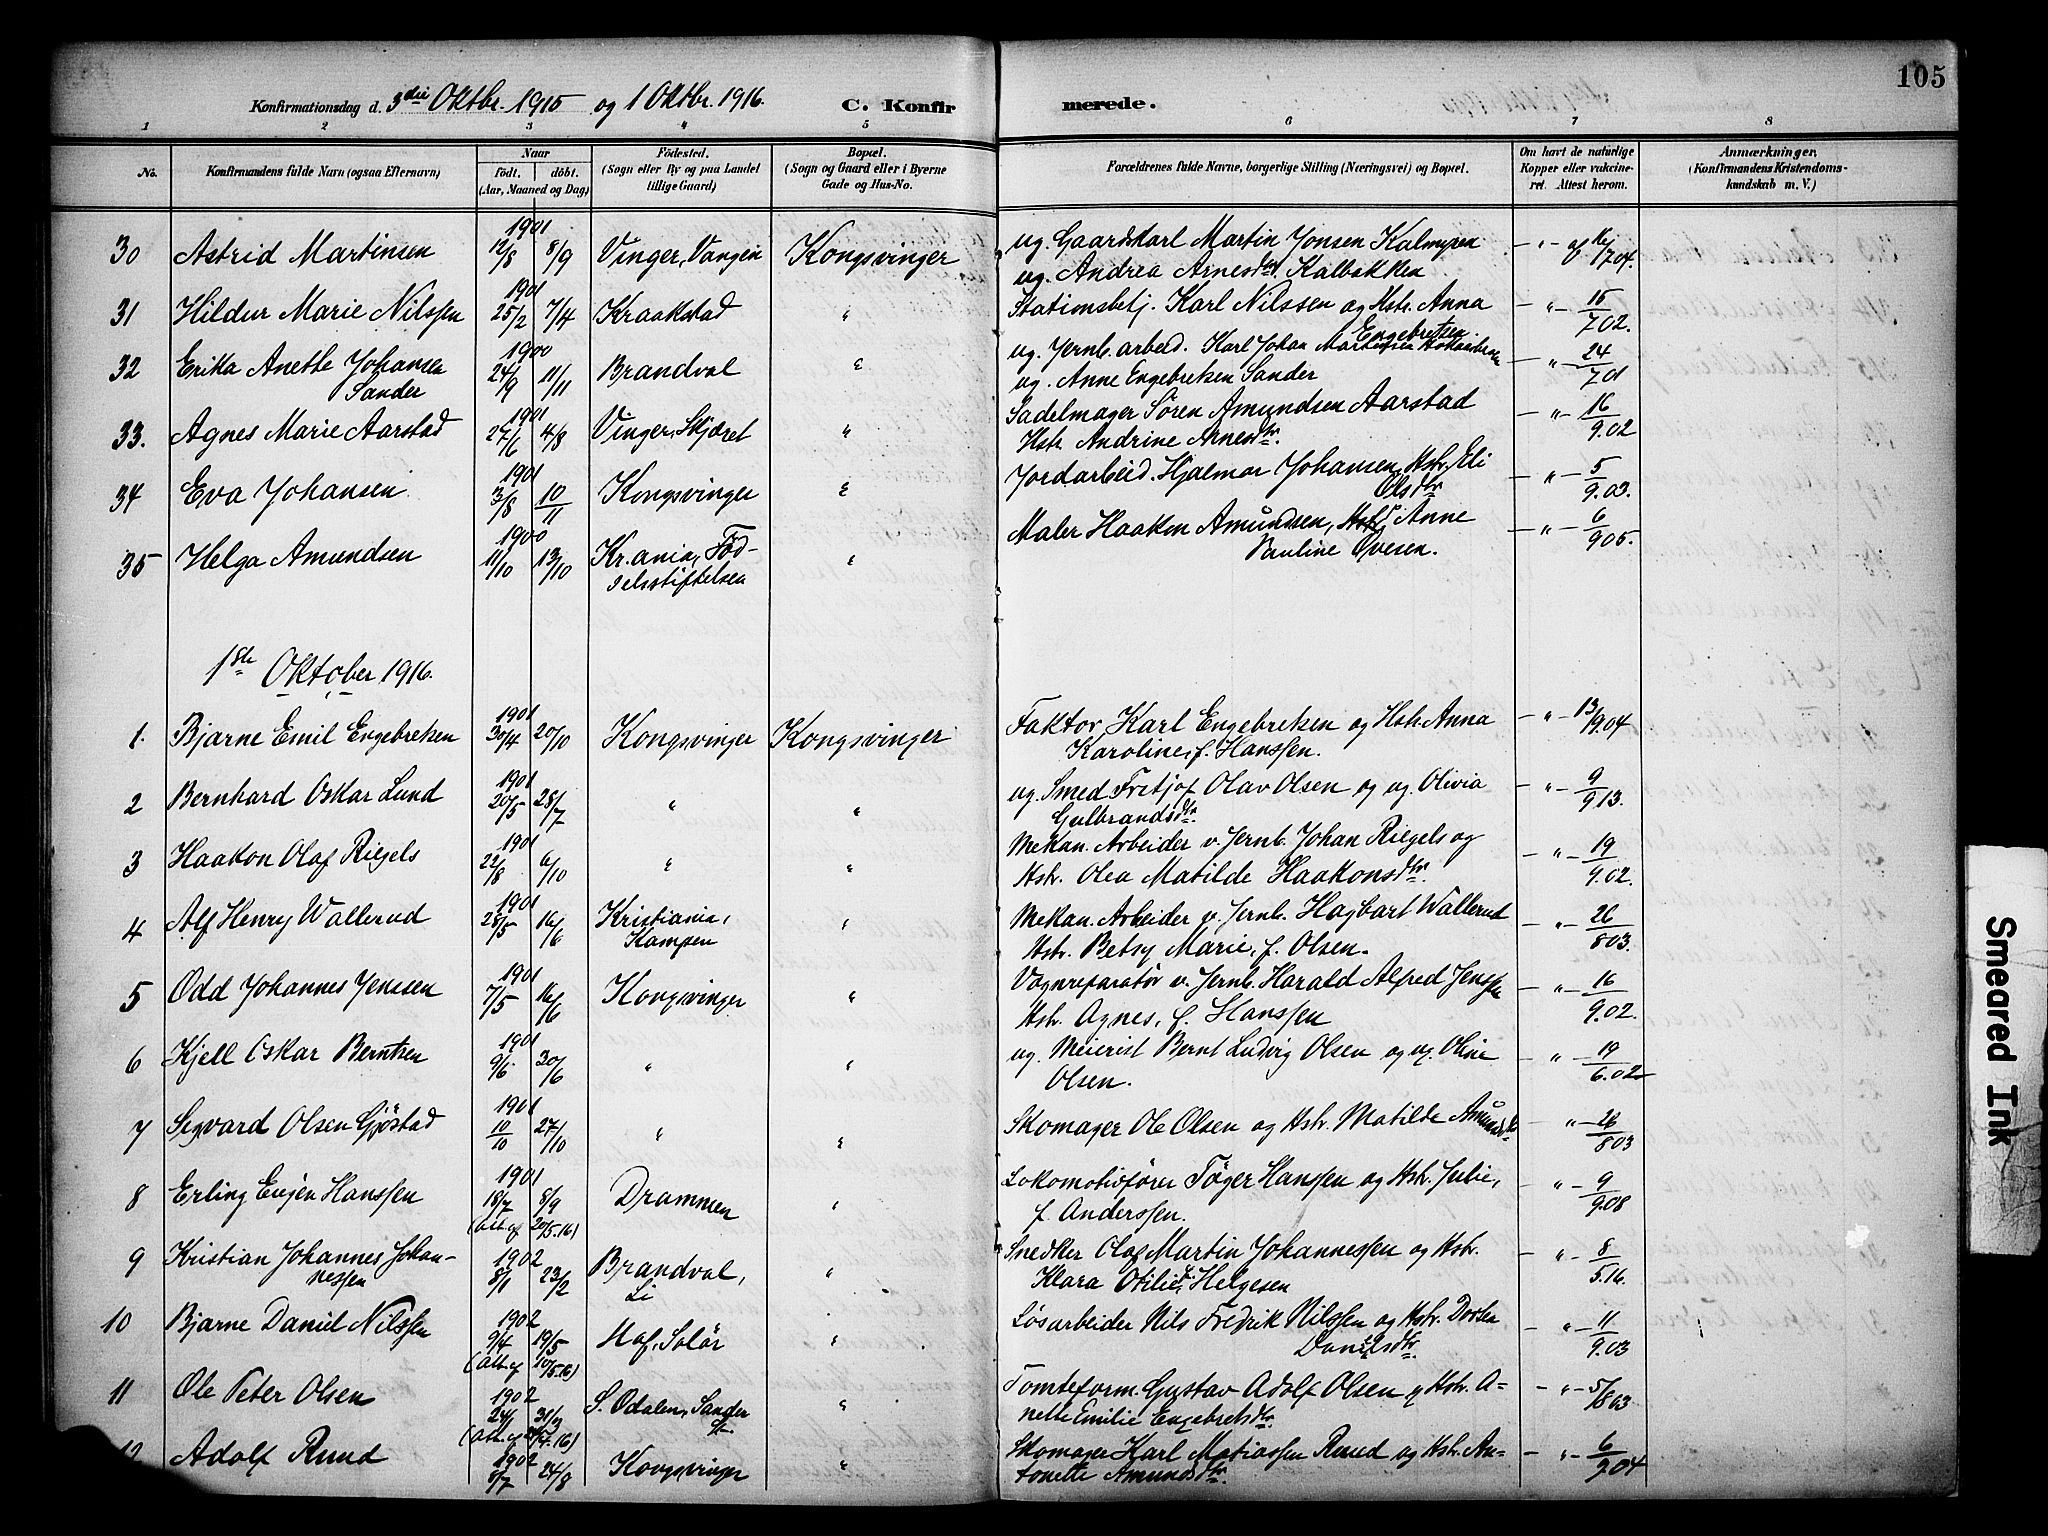 105
Konfirmationsdag d. 3die Oktbr. 1915 og 1 Oktbr. 1916. C. Konfirmerede.
1 2 3 4 5 6 7 8
No. Konfirmandens fulde Navn (ogsaa Efternavn) Naar født. døbt. (Aar, Maaned og Dag) Fødested. (Sogn eller By og paa Landet tillige Gaard) Bopæl. (Sogn og Gaard eller i Byerne Gade og Hus-No. Forældrenes fulde Navne, borgerlige Stilling (Næringsvei) og Bopæl. Om havt de naturlige Kopper eller vakcineret. Attest herom. Anmærkninger. (Konfirmandens Kristendomskundskab m. V.)
1901
30 Astrid Martinsen 12/8 8/9 Vinger, Vangen Kongsvinger ug. Gaardskarl Martin Jonsen Kalmyren
ug. Andrea Arnesdtr. Kalbakken
1901
31 Hildur Marie Nilssen 25/2 7/4 Kraakstad " Stationsbetj. Karl Nilssen og Hstr. Anna Engebretsen — " — 15/7 02.
1900
32 Erika Anette Johansen 24/9 11/11 Brandval " ug. Jernb. arbeid. Karl Johan
Sander ug. Anne Engebretsen Sander — " — 24/7 01
1901
33. Agnes Marie Aarstad 27/6 4/8 Vinger, Skjæret " Sadelmager Søren Amundsen Aarstad — " — 16/9.02
Hstr. Andrine Arnesdtr.
1901
34 Eva Johansen 3/8 10/11 Kongsvinger " Jordarbeid. Hjalmar Johansen, Hstr. Eli — " — 5/9.03.
Olsdtr.
1900
35 Helga Amundsen 11/10 13/10 Kr.ania, Fød- " Maler Haakon Amundsen, Anne — " — 6/9 05.
selsstiftelsen Pauline Ovesen.
1ste Oktober 1916.
1901
1. Bjarne Emil Engebretsen 30/4 20/10 Kongsvinger Kongsvinger Faktor Karl Engebretsen og Hstr. Anna — " — 13/9.04
Karoline, f. Hanssen.
1901
2 Bernhard Oskar Lund 20/5 28/7 " " ug. Smed Fritjof Olav Olsen og ug. Olivia — " — 9/9 13.
Gulbrandsdtr.
1901
3 Haakon Olaf Riegels 22/8 6/10 " " Mekan. Arbeider v. Jernb. Johan Riegels og — " — 19/9.02.
Hstr. Olea Matilde Haakonsdtr.
1901
4 Alf Henry Wallerud 28/5 16/6 Kristiania, " Mekan. Arbeider v. Jernb. Hagbart Wallerud — " — 26/8 03.
Kampen Hstr. Betsy Marie, f. Olsen.
1901
5 Odd Johannes Jenssen 7/5 16/6 Kongsvinger " Vognreparatør v. Jernb. Harald Alfred Jenssen — " — 16/9.02.
Hstr. Agnes, f. Hanssen
1901
6 Kjell Oskar Berntsen 9/6 30/6 " " ug. Meierist Bernt Ludvig Olsen og ug. Oline — " — 19/6.02
Olsen.
1901
7 Sigvard Olsen Gjøstad 10/10 27/10 " " Skomager Ole Olsen og Hstr. Matilde Amundsdtr. — " — 26/8 03
1901
8 Erling Eugen Hanssen 18/7 8/9 Drammen " Lokomotivfører Tøger Hanssen og Hstr. Julie, — " — 9/9.08
(Att. af 20/5.16) f. Anderssen.
1902
9 Kristian Johannes Johan- 8/1 23/2 Brandval, " Snedker Olaf Martin Johannessen og Hstr. — " — 8/5.16.
nessen Li Klara Otilie, f. Helgesen
1902
10 Bjarne Daniel Nilssen 9/4 19/5 Hof, Solør " Løsarbeider Nils Fredrik Nilssen og Hstr. Dortea — " — 11/9.03
(Att. af 10/5.16) Danielsdtr.
1902
11 Ole Peter Olsen 24/1 31/3 S. Odalen, Sander St. " Tomteform. Gustav Adolf Olsen og Hstr. A- — " — 5/8 03
nette Emilie Engebretsdtr.
1902
12 Adolf Ruud 8/7 24/8 Kongsvinger " Skomager Karl Matiassen Ruud og Hstr. An- — " — 6/9 04
tonette Amundsdtr.
Smeared Ink